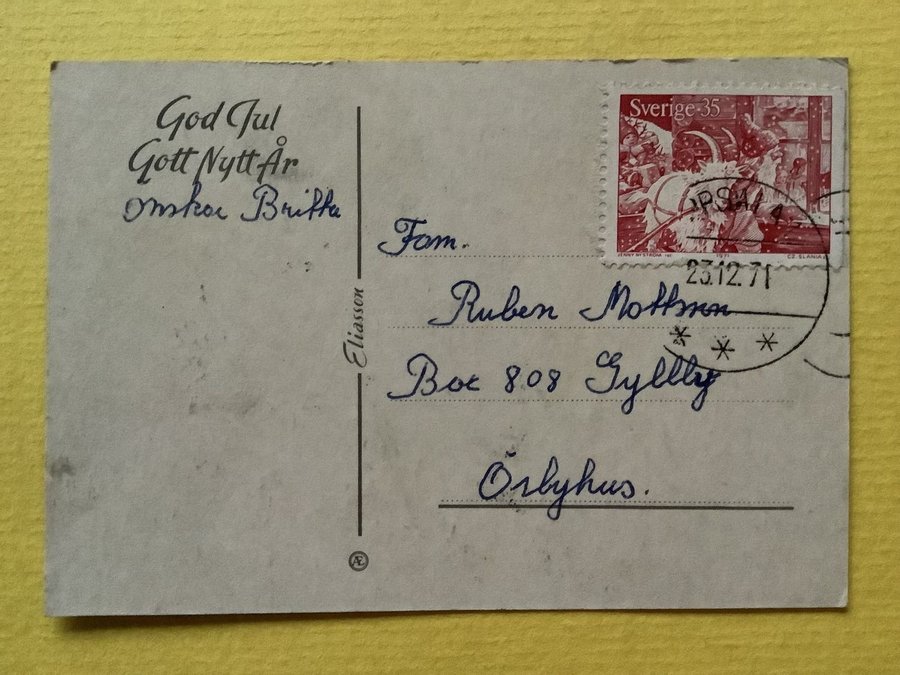 God Jul
Gott Nytt År
önskar Britta
Eliasson
Æ
Sverige 35
JENNY NYSTRÖM
1971
CZ. SLANIA
PSALA 4
23.12.71
Fam.
Ruben Mattsson
Box 808 Gyllby
Örbyhus.